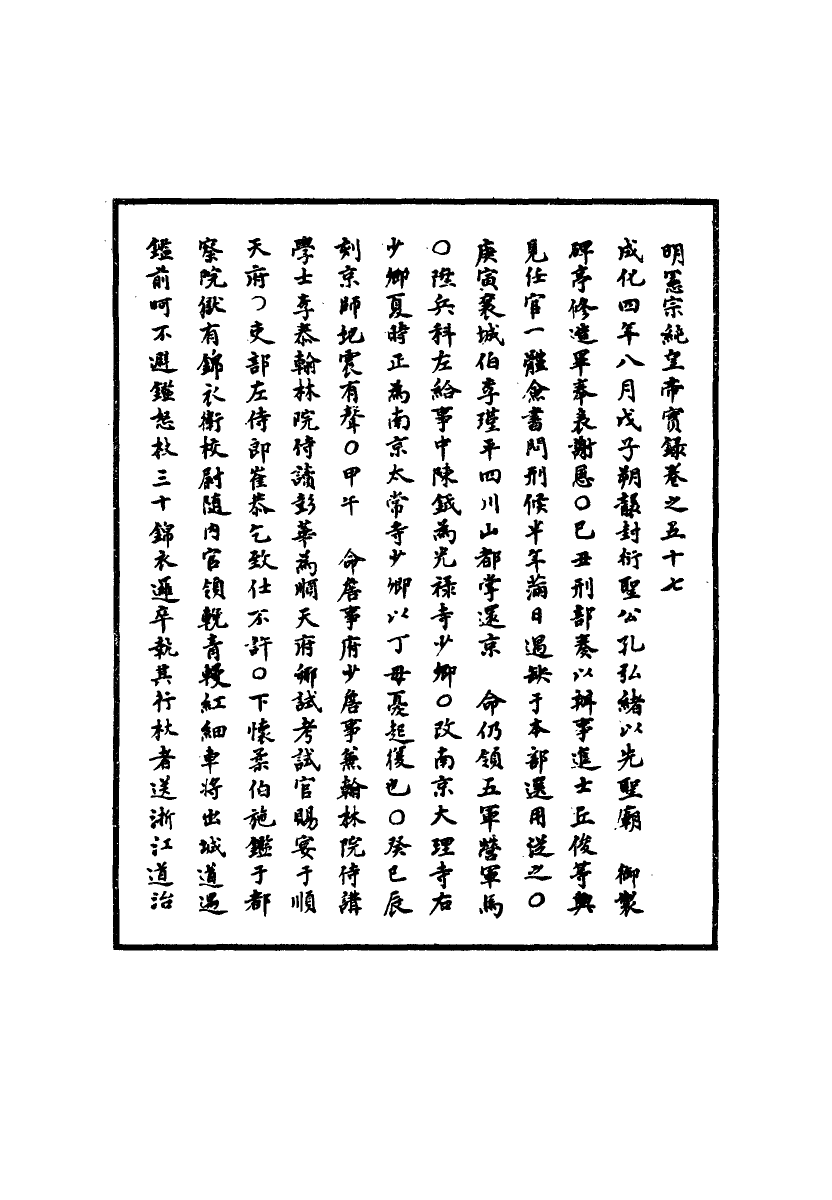 明憲宗純皇帝實錄卷之五十七
成化四年八月戊子朔襲封衍聖公孔弘緒以先聖廟　御製
碑亭修造畢奉表謝恩○己丑刑部奏以辦事進士丘俊等與
見任官一體僉書問刑候半年滿日遇缺于本部選用從之○
庚寅襄城伯李瑾平四川山都掌還京　命仍領五軍營軍馬
○陞兵科左給事中陳鉞為光祿寺少卿○改南京大理寺右
少卿夏時正為南京太常寺少卿以丁母憂起復也○癸巳辰
刻京師地震有聲○甲午　命詹事府少詹事兼翰林院侍講
學士李泰翰林院侍讀彭華為順天府鄉試考試官賜宴于順
天府○吏部左侍郎崔恭乞致仕不許○下懷柔伯施鑑于都
察院獄有錦衣衛校尉隨內官領輓青幔紅細車將出城道遇
鑑前呵不避鑑怒杖三十錦衣邏卒執其行杖者送浙江道治